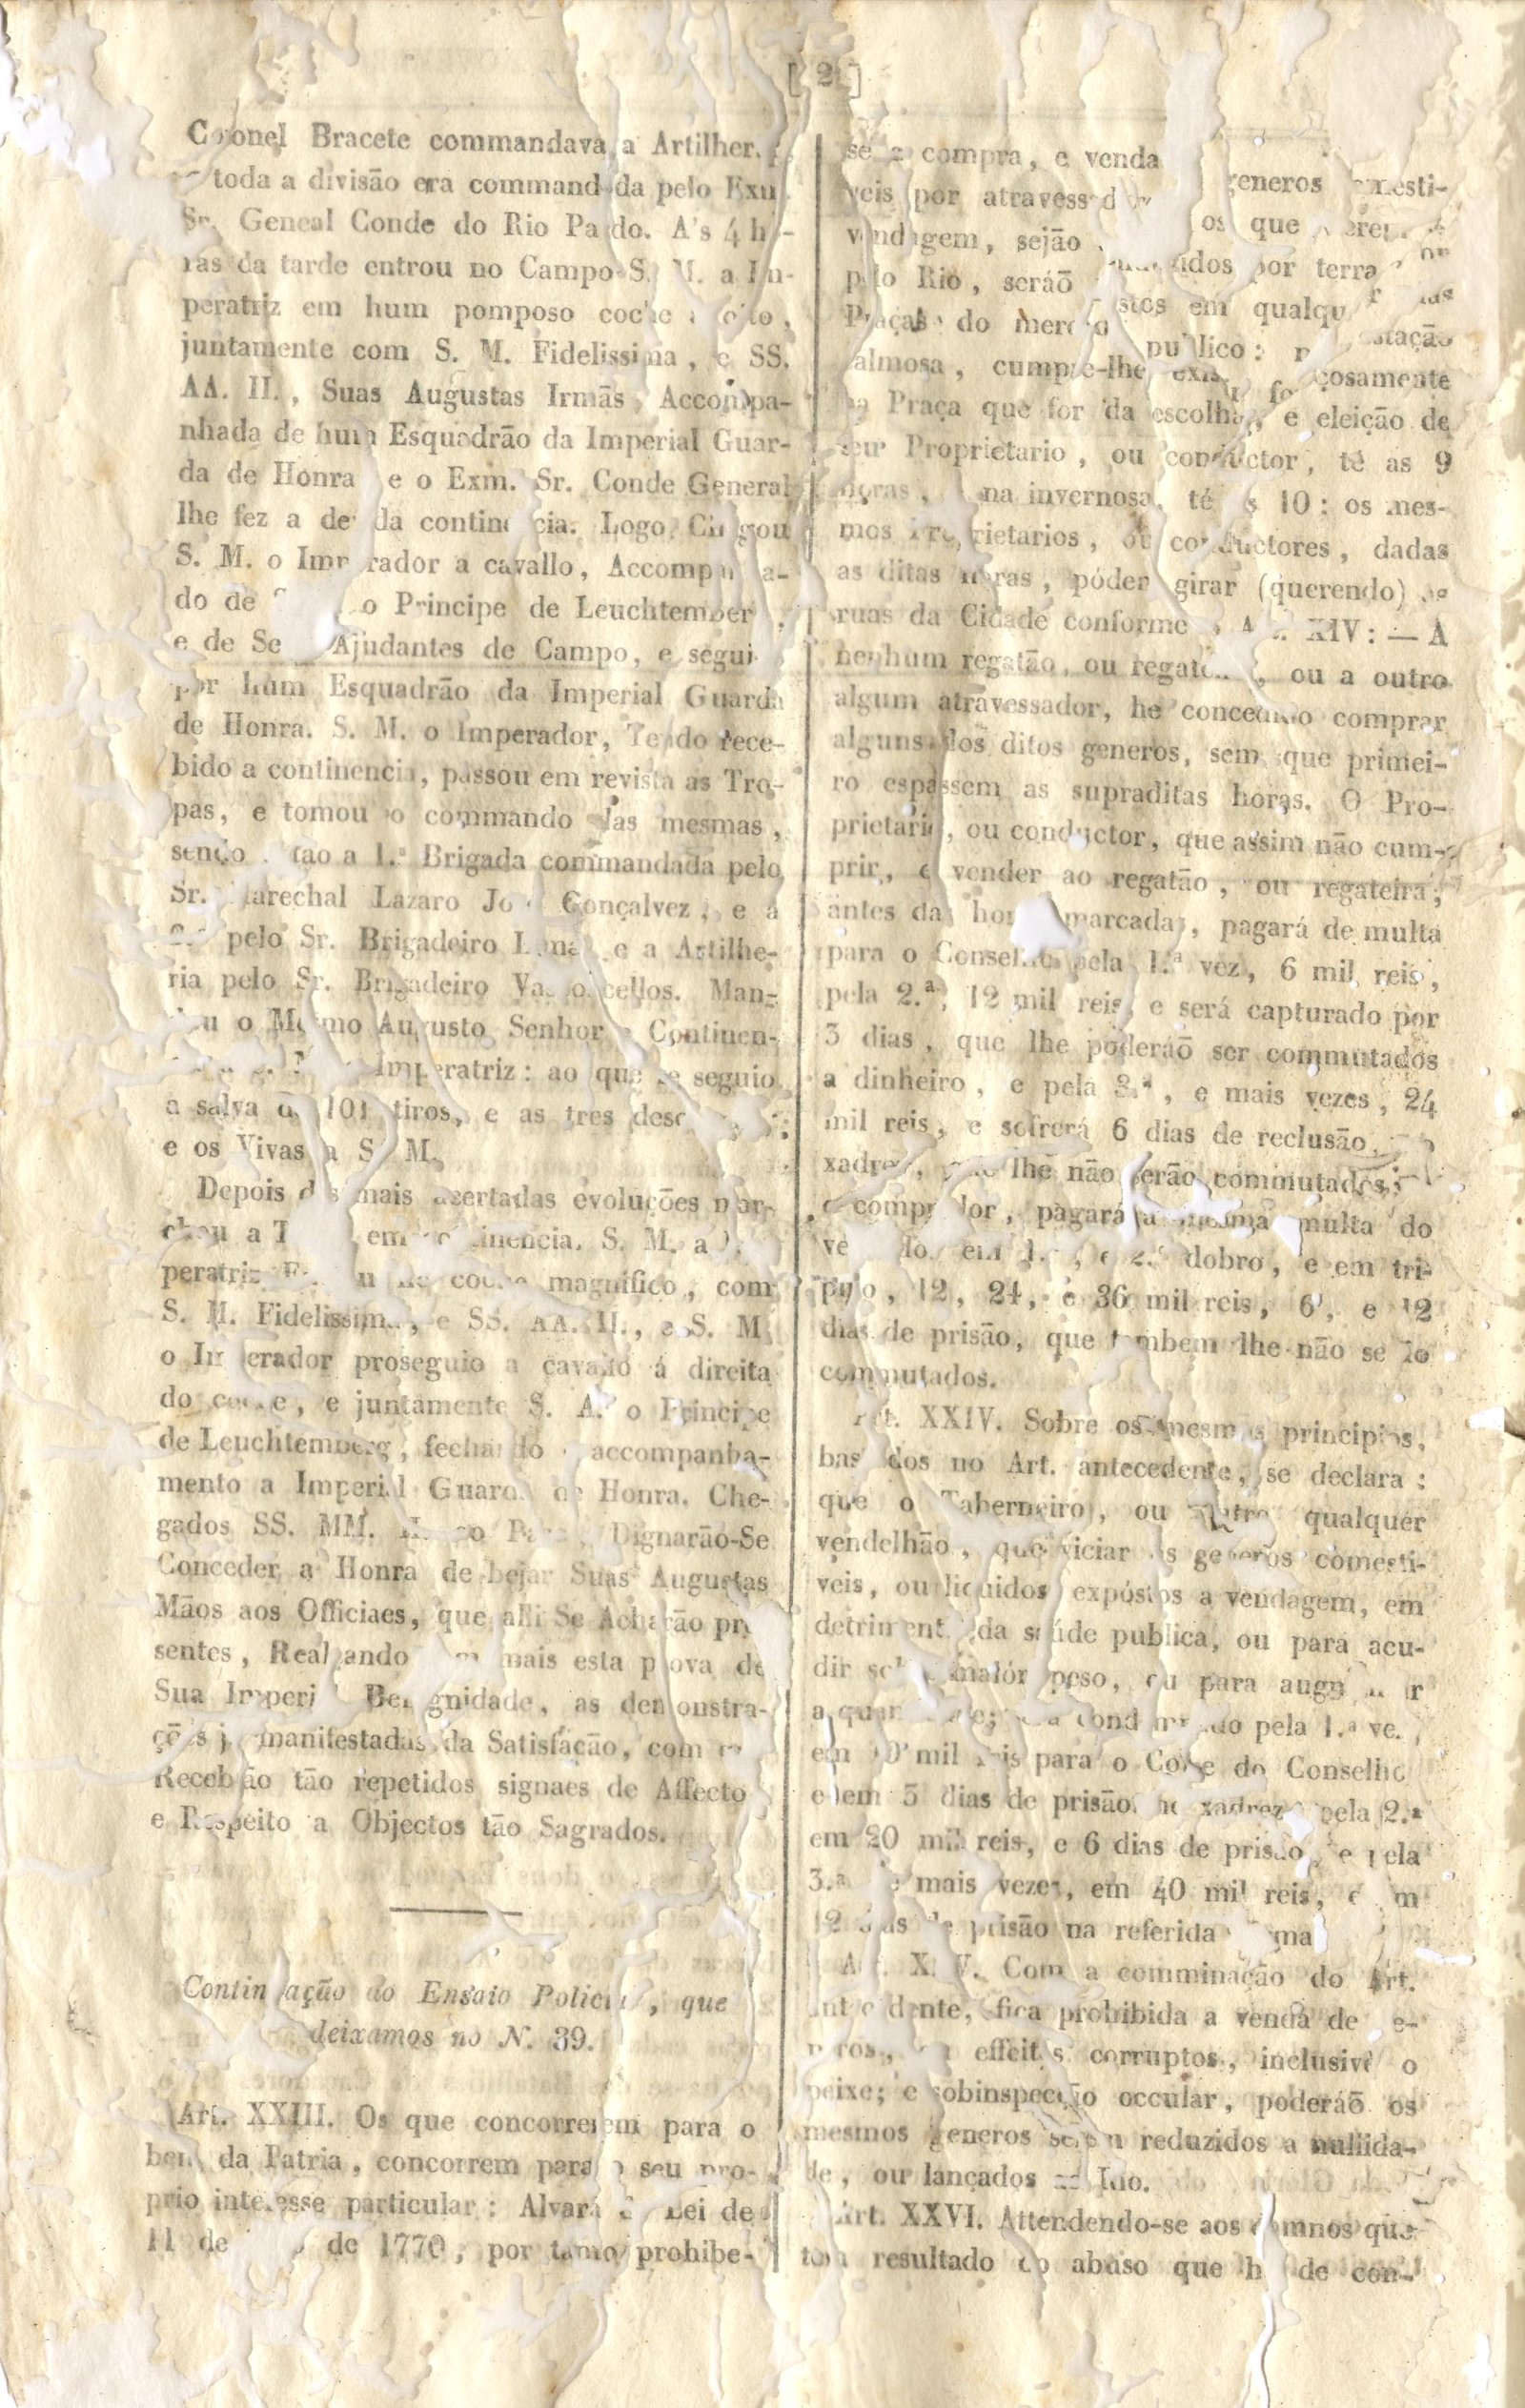 [ 2 ]
Coronel Bracete commandava a
toda a divisão era commandada pelo
Sr. Geneal Conde do Rio Pardo. A's 4 ho-
ras da tarde entrou no Campo S. M. a Im-
peratriz em hum pomposo coche
juntamente com S. M. Fidelissima, e SS.
AA. II., Suas Augustas Irmãs, Accompa-
nhada de hum Esquadrão da Imperial Guar-
da de Honra e o Exm. Sr. Conde General
lhe fez a devida continencia. Logo Chegou
S. M. o Imperador a cavallo, Accompanha-
do de o Principe de Leuchtemberg,
e de Seus Ajudantes de Campo, e seguido
por hum Esquadrão da Imperial Guarda
de Honra. S. M. o Imperador, Tendo rece-
bido a continencia, passou em revista as Tro-
pas, e tomou o commando das mesmas,
sendo então a 1.ª Brigada commandada pelo
Sr. Marechal Lazaro José Gonçalvez, e a
pelo Sr. Brigadeiro e a Artilhe-
ria pelo Sr. Brigadeiro Vasconcellos. Man-
dou o Mesmo Augusto Senhor a Continen-
Imperatriz: ao que se seguio
a salva de 101 tiros, e as tres
e os Vivas a S. M.
Depois das mais acertadas evoluções mar-
chou a em continencia. S. M. a Im-
peratriz coche magnifico, com
S. M. Fidelissima, e SS. AA. II., e S. M.
o Imperador proseguio a cavallo á direita
do coche, e juntamente S. A. o Principe
de Leuchtemberg, fechando o accompanha-
mento a Imperial Guarda de Honra. Che-
gados SS. MM. II. ao Dignarão-Se
Conceder a Honra de bejar Suas Augustas
Mãos aos Officiaes, que alli Se Acharão pre-
sentes, Realçando mais esta prova de
Sua Imperial Benignidade, as demonstra-
ções já manifestadas da Satisfação, com
Recebião tão repetidos signaes de Affecto
e Respeito a Objectos tão Sagrados.
Continuação do Ensaio Policial, que
deixamos no N. 39.
Art. XXIII. Os que concorrerem para o
bem da Patria, concorrem para o seu pro-
prio interesse particular: Alvará Lei de
11 de de 1770, por tanto prohibe-
se a compra, e venda generos comesti-
veis por atravessadores
vendagem, sejão os que
pelo Rio, seráõ por terra
Praças do mercado publico: em qualquer das
calmosa, cumpre-lhe forçosamente
na Praça que for da escolha, e eleição de
seu Proprietario, ou conductor, té as 9
horas, na invernosa, té as 10: os mes-
mos Proprietarios, ou conductores, dadas
as ditas horas, póder girar (querendo) as
ruas da Cidade conforme XIV: — A
nenhum regatão, ou regateira, ou a outro
algum atravessador, he concedido comprar
alguns dos ditos generos, sem que primei-
ro espassem as supraditas horas. O Pro-
prietario, ou conductor, que assim não cum-
prir, e vender ao regatão, ou regateira,
antes das horas marcadas, pagará de multa
para o Conselho pela 1.ª vez, 6 mil reis,
pela 2.ª, 12 mil reis, e será capturado por
3 dias, que lhe poderáõ ser commutados
a dinheiro, e pela 3.ª, e mais vezes, 24
mil reis, e sofrerá 6 dias de reclusão
xadrez, que lhe não serão commutados;
o comprador, pagará a mesma multa do
vendedor em dobro, e em tri-
plo, 12, 24, e 36 mil reis, 6, e 12
dias de prisão, que tambem lhe não serão
commutados.
Art. XXIV. Sobre os mesmos principios,
baseados no Art. antecedente, se declara:
que o Taberneiro, ou outro qualquer
vendelhão, que viciar os generos comesti-
veis, ou liquidos expóstos a vendagem, em
detrimento da saúde publica, ou para acu-
dir maiór peso, ou para augmentar
a quantidade; será condemnado pela 1.ª vez,
em 10 mil reis para o Cofre do Conselho
e em 3 dias de prisão no xadrez, pela 2.ª
em 20 mil reis, e 6 dias de prisão, e pela
3.ª, e mais vezes, em 40 mil reis, e em
12 dias de prisão na referida
Art. XXV. Com a comminação do Art.
antecedente, fica prohibida a venda de ge-
neros, ou effeitos corruptos, inclusive o
peixe; e sobinspecção occular, poderáõ os
mesmos generos serem reduzidos a nullida-
de, ou lançados ao Rio.
Art. XXVI. Attendendo-se aos damnos que
tem resultado do abuso que ha de con-